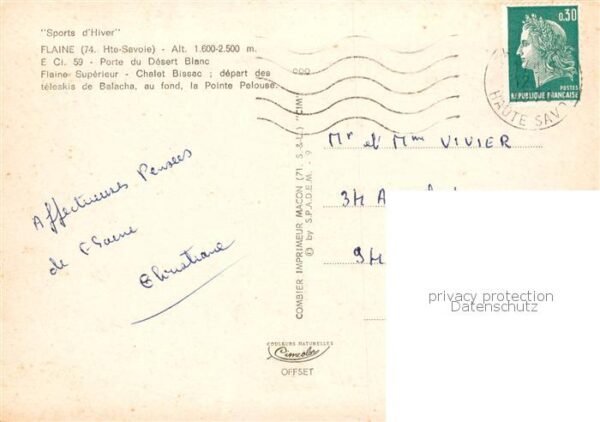 "Sports d'Hiver"
FLAINE (74. Hte-Savoie) - Alt. 1.600-2.500 m.
E Ci. 59 - Porte du Désert Blanc
Flaine Supérieur - Chalet Bissac ; départ des
téleskis de Balacha, au fond, la Pointe Pelouse.
0.30
POSTES
REPUBLIQUE FRANÇAISE
HAUTE SAVO
Affectueuses Pensées
de Flaine
Christiane
COMBIER IMPRIMEUR MACON (71. S.-&-L.) "CIM"
© by S.P.A.D.E.M. - 9
Mr et Mme VIVIER
34 A
94
privacy protection
Datenschutz
COULEURS NATURELLES
Cimcolor
OFFSET